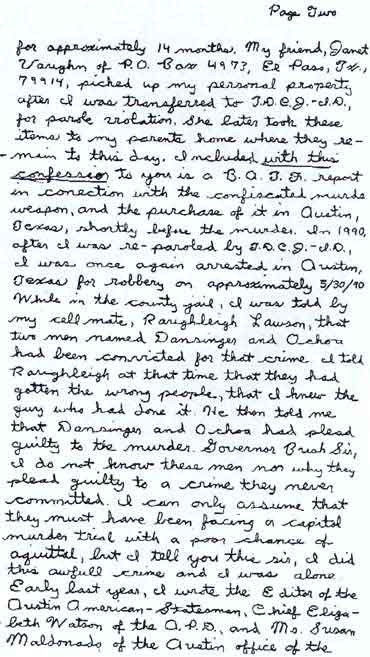 Page Two
for approximately 14 months. My friend, Janet
Vaughn of P.O. Box 4973, El Paso, Tx.,
79914, picked up my personal property
after I was transferred to T.D.C.J.-I.D.,
for parole violation. She later took these
items to my parents home where they re-
main to this day. Included with this
confession to you is a B.A.T.F. report
in conection with the confiscated murde
weapon, and the purchase of it in Austin,
Texas, shortly before the murder. In 1990,
after I was re-paroled by T.D.C.J.-I.D.,
I was once again arrested in Austin,
Texas for robbery on approximately 5/30/90
While in the county jail, I was told by
my cell mate, Raughleigh Lawson, that
two men named Dansinger and Ochoa
had been convicted for that crime I told
Raughleigh at that time that they had
gotten the wrong people, that I knew the
guy who had done it. He then told me
that Dansinger and Ochoa had plead
guilty to the murder. Governor Bush Sir,
I do not know these men nor why they
plead guilty to a crime they never
committed. I can only assume that
they must have been facing a capitol
murder trial with a poor chance of
aquittal, but I tell you this sir, I did
this awfull crime and I was alone.
Early last year, I wrote the Editor of the
Austin American-Statesman, Chief Eliza-
beth Watson of the A.P.D., and Ms. Susan
Maldonado of the Austin office of the